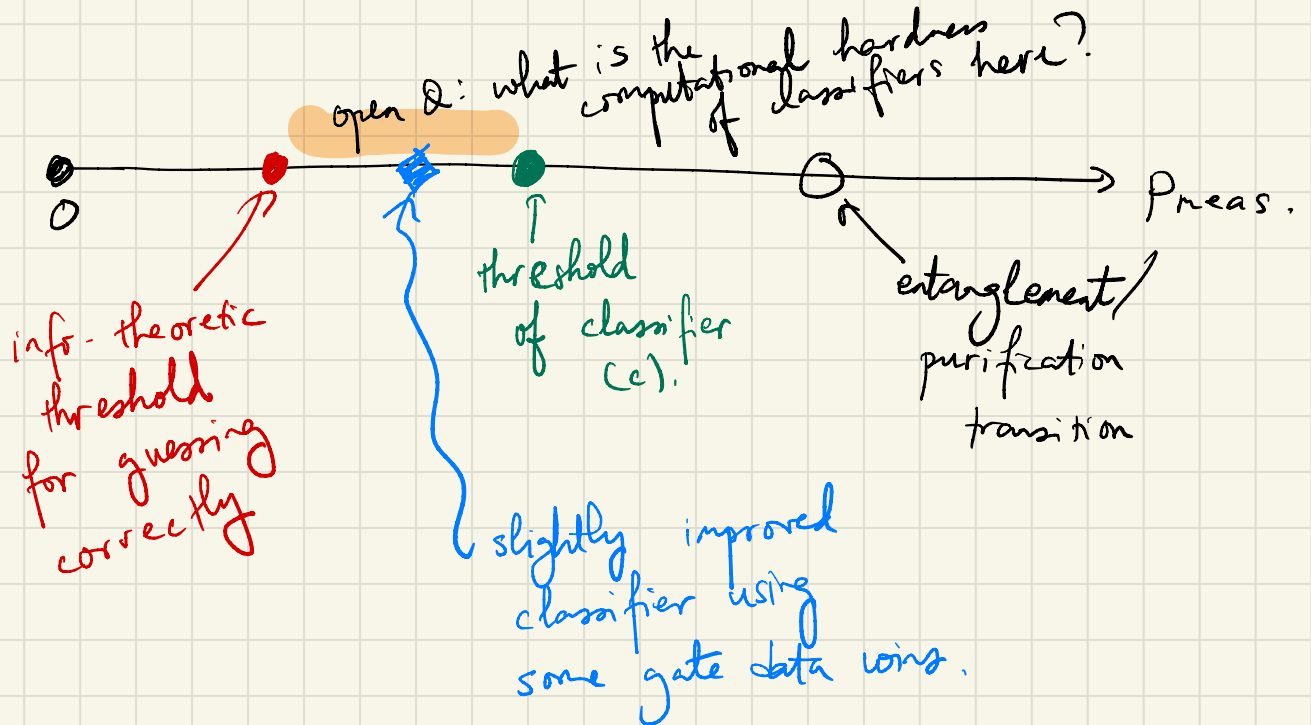 open Q: what is the
computational hardness
of classifiers here?
0
Pmeas.
info-theoretic
threshold
for guessing
correctly
threshold
of classifier
(c).
entanglement/
purification
transition
slightly improved
classifier using
some gate data wins.